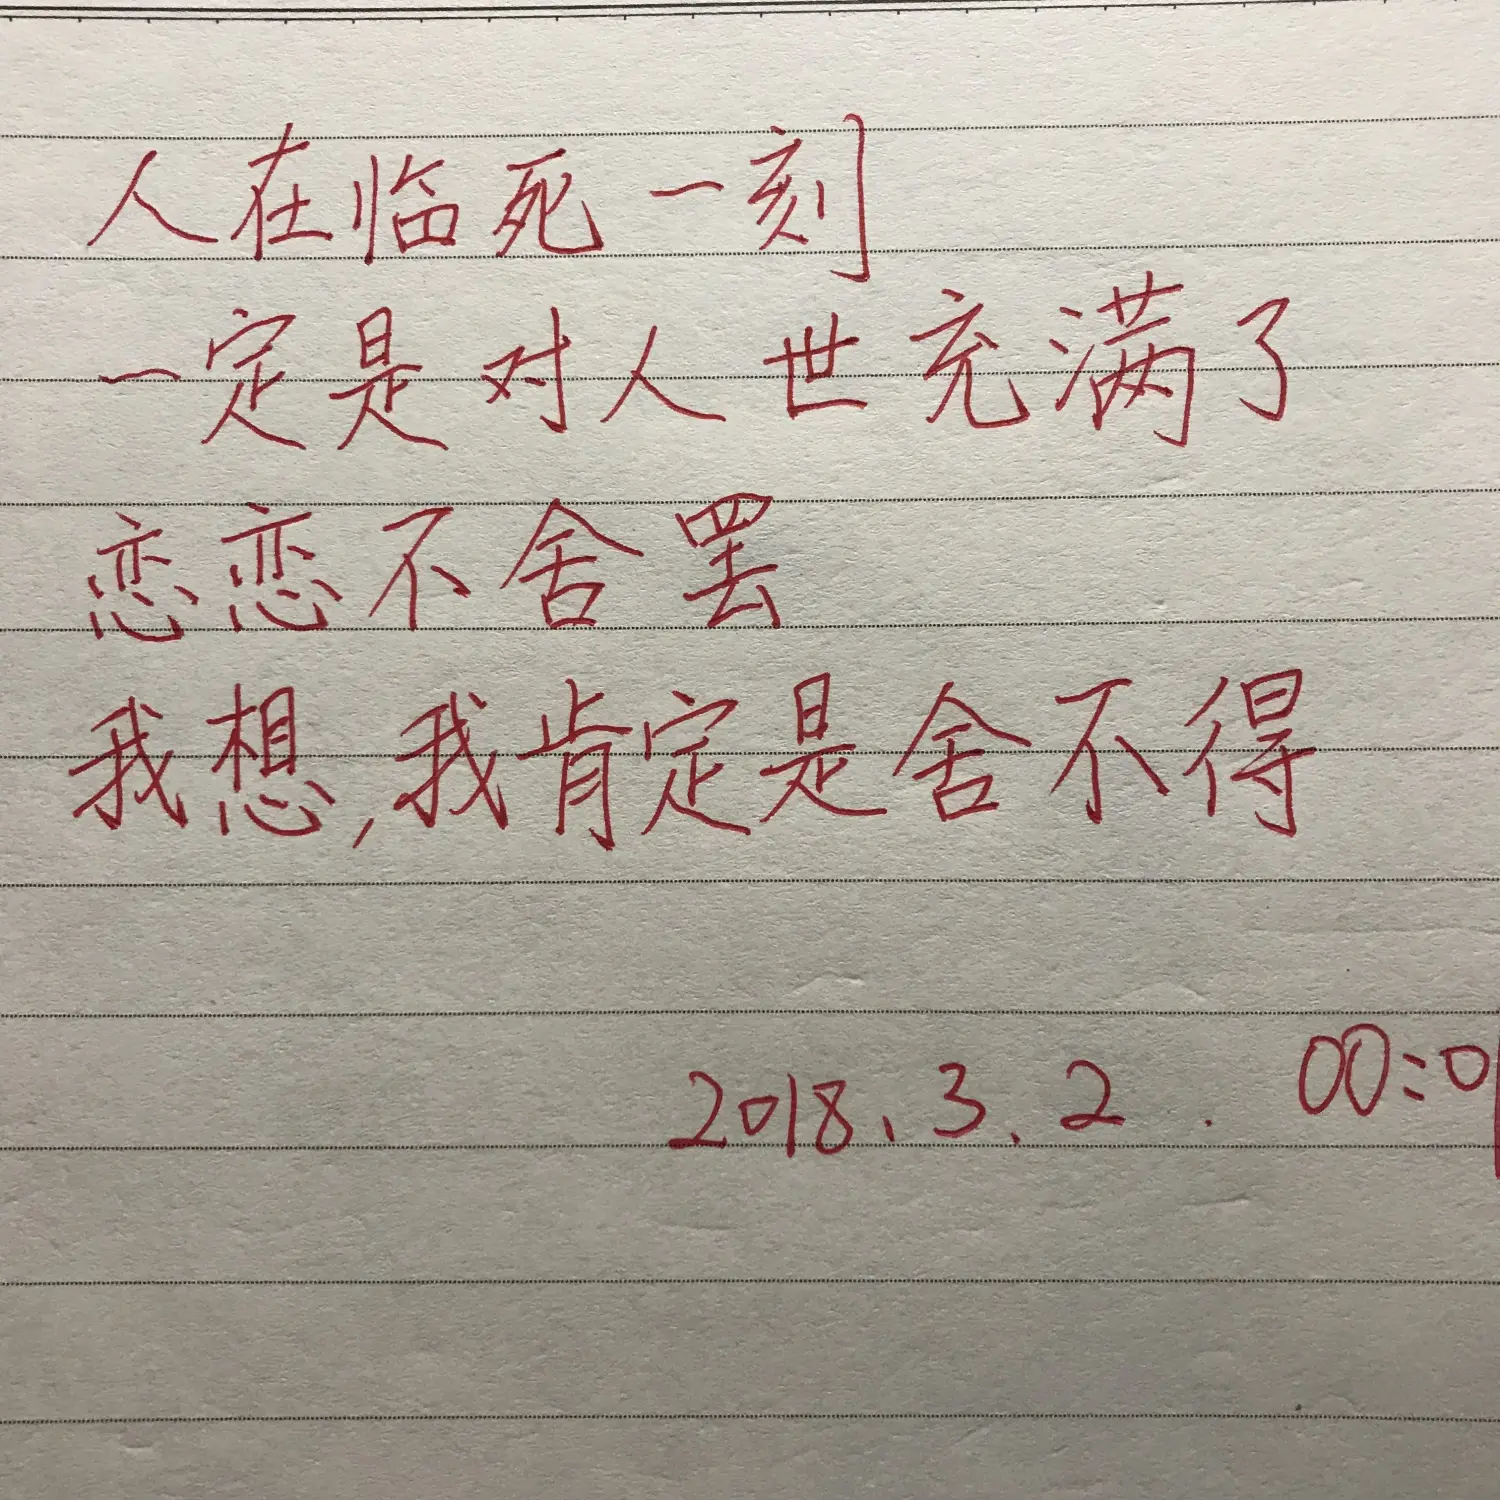 人在临死一刻
一定是对人世充满了
恋恋不舍罢
我想,我肯定是舍不得
2018.3.2. 00:01